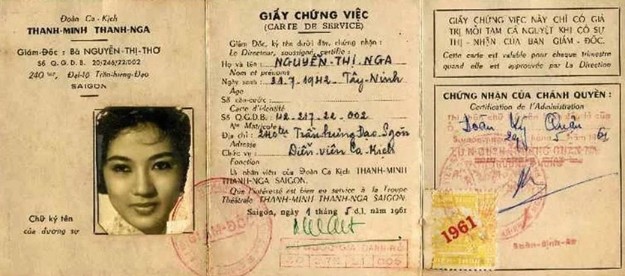 Đoàn Ca-Kịch
THANH-MINH THANH-NGA
Giám-Đốc: Bà NGUYỄN-THỊ-THƠ
Số Q.G.D.B. 20/246/22/002
240 ter, Đại-lộ Trần-hưng-Đạo
SAIGON
Chữ ký tên
của đương sự
GIẤY CHỨNG VIỆC
(CARTE DE SERVICE)
Giám Đốc, ký tên dưới đây, chứng nhận :
Le Directeur, soussigné, certifie :
Họ và tên : NGUYỄN THỊ NGA
Nom et prénoms
Ngày sanh : 31.7.1942 Tây-Ninh
Age
Số căn-cước :
Carte d'identité
Số Q.G.D.B : 42.217.22.002
Nº Matricule
Địa chỉ : 240ter Trần hưng Đạo Sgòn
Adresse
Chức vụ : Diễn viên Ca-Kịch
Fonction
là nhân viên của Đoàn Ca Kịch THANH-MINH
THANH-NGA SAIGON.
Que l'intéressé est bien au service à la Troupe
Théâtrale THANH-MINH THANH-NGA SAIGON.
Saigon, ngày 1 tháng 5 d.l. năm 1961
GIẤY CHỨNG VIỆC NÀY CHỈ CÓ GIÁ
TRỊ MỖI TAM CÁ NGUYỆT KHI CÓ SỰ
THỊ - NHẬN CỦA BAN GIÁM - ĐỐC.
Cette carte est valable pour chaque trimestre
quand elle est approuvée par La Direction
CHỨNG NHẬN CỦA CHÁNH QUYỀN :
Certification de l'Administration
1961